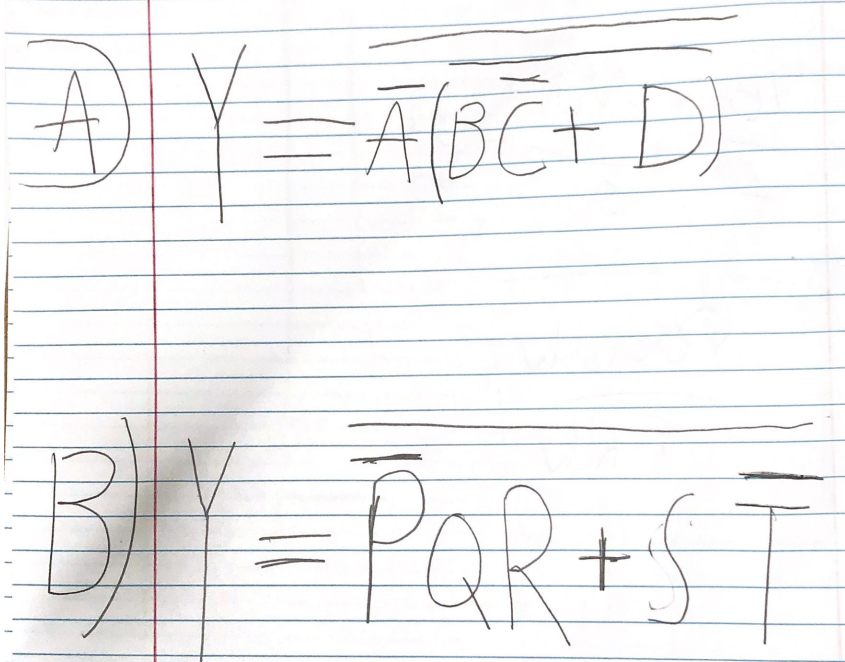 A) Y = \overline{\overline{A}(\overline{B\overline{C} + D})}
B) Y = \overline{\overline{P}QR + S\overline{T}}